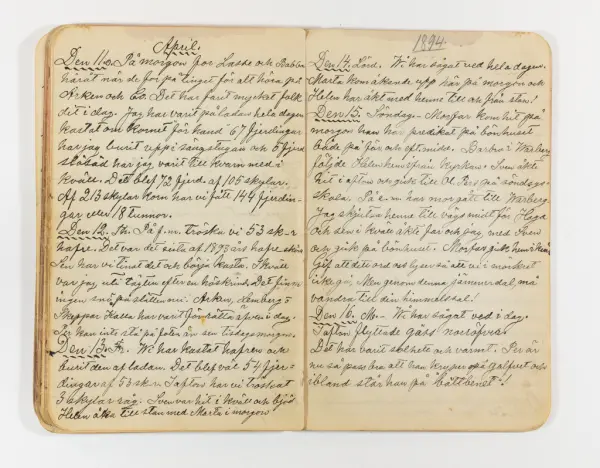 April.
Den 11. På morgon for Lasse och Babba
häråt när de for på tinget för att höra på
Arken och Co. Det har farit mycket folk
dit i dag. Jag har varit på ladan hela dagen
kastat om kornet för hand 67 fjerdingar
har jag burit upp i sängstugan och 5 fjerd
slösäd har jag varit till kvarn med i
kväll. Det blef 72 fjerd. af 105 skylar.
Af 213 skylar korn har vi fått 144 fjerdin-
gar eller 18 tunnor.
Den 12. Th. På f.m. tröska vi 53 sk-r
hafre. Det var det sista af 1893 års hafre
Sen har vi rinsat det och börja kasta. I kväll
var jag vid tåften efter en höskrind. Det finns
ingen snö på slätten nu. Arken, Lemberg &
Skeppar Kalla har varit försatta äfven i dag.
Per kan inte stå på foten än sen tisdagsmorgon.
Den 13. Fr. Vi har kastat hafren och
burit den af ladan. Det blef väl 54 fjer-
dingar af 53 sk-r. I aftons har vi tröskat
3 skylar råg. Sven var hit i kväll och bjöd
Helen åka till stan med Marta i morgon
1894.
Den 14. Lörd. Vi har sågat ved hela dagen.
Marta kom åkande upp här på morgon och
Helen har åkt med henne till och från stan!
Den 15. Söndag. Morfar kom hit på
morgon han har predikat på bönhuset
både på för och eftmidd. Barbro i Warberg
följde Helen hem från kyrkan. Sven åkte
hit i aftons och gick till Ol Pers på söndags-
skola. På e.m. har mor gått till Warberg
Jag skjutsa henne till vägs midt för Haga
och sen i kväll åkte far och jag, med Sven
och gick på bönhuset. Morfar gick hem i kväll
Gif att ditt ord oss lyser så att vi i mörkret
ej kega. Men genom denna jämmerdal, må
vandra till din himmelssal!
Den 16. M- Vi har sågat ved i dag.
I aftons flyttade gäss norröfver.
Det har varit solhete och varmt. Per är
nu så pass bra att han kryper på golfvet och
ibland står han på "båttbenet"!